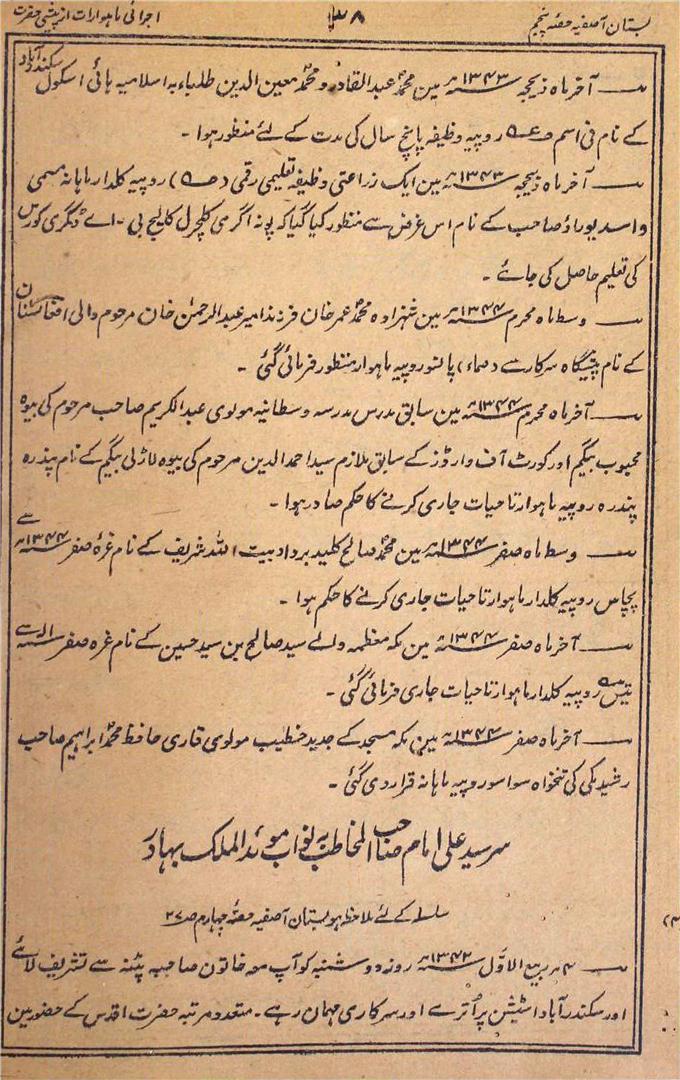 بستان آصفیہ حصّہ پنجم
۳۸
اجرائی ماہوارات از پیشی حضرت
آخر ماہ ذیحجہ ۱۳۴۳ھ مین محمدؐ عبدالقادر و محمدؐ معین الدین طلباءِ اسلامیہ ہائی اسکول سکندرآباد
کے نام فی اسم روپیہ وظیفہ پانچ سال کی مدت کے لئے منظور ہوا ۔
آخر ماہ ذیحجہ ۱۳۴۳ھ مین ایک زراعتی وظیفہ تعلیمی رقمی ( ) روپیہ کلدار ماہانہ مسمی
واسدیو راؤ صاحب کے نام اس غرض سے منظور کیا گیا کہ پونہ اگری کلچرل کالیج بی ۔ اے ڈگری کورس
کی تعلیم حاصل کی جائے ۔
وسط ماہ محرم ۱۳۴۴ھ مین شہزادہ محمدؐ عمر خان فرزند امیر عبدالرحمٰن خان مرحوم والی افغانستان
کے نام پیشگاہ سرکار سے ( ) پانسو روپیہ ماہوار منظور فرمائی گئی ۔
آخر ماہ محرم ۱۳۴۴ھ مین سابق مدرس مدرسہ وسطانیہ مولوی عبدالکریم صاحب مرحوم کی بیوہ
محبوب بیگم اور کورٹ آف وارڈز کے سابق ملازم سید احمد الدین مرحوم کی بیوہ لاڑلی بیگم کے نام پندرہ
پندرہ روپیہ ماہوار تا حیات جاری کرنے کا حکم صادر ہوا ۔
وسط ماہ صفر ۱۳۴۴ھ مین محمدؐ صالح کلید بردار بیت اللہ شریف کے نام غرۂ صفر ۱۳۴۴ھ سے
پچاس روپیہ کلدار ماہوار تا حیات جاری کرنے کا حکم ہوا ۔
آخر ماہ صفر ۱۳۴۴ھ مین مکہ معظمہ والے سید صالح بن سید حسین کے نام غرہ صفر سنہ الیہ سے
تیس روپیہ کلدار ماہوار تا حیات جاری فرمائی گئی ۔
آخر ماہ صفر ۱۳۴۴ھ مین مکہ مسجد کے جدید خطیب مولوی قاری حافظ محمدؐ ابراہیم صاحب
رشیدی کی تنخواہ سوا سو روپیہ ماہانہ قرار دی گئی ۔
سر سید علی امام صاحب المخاطب بہ نواب موئد الملک بہادر
سلسلے کے لئے ملاحظہ ہو بستان آصفیہ حصّہ چہارم ص ۲۷
۴ ۔ ربیع الاوّل ۱۳۴۲ھ روز دوشنبہ کو آپ معہ خاتون صاحبہ پٹنہ سے تشریف لائے
اور سکندرآباد اسٹیشن پر اُترے اور سرکاری مہمان رہے ۔ متعدد مرتبہ حضرت اقدس کے حضور مین